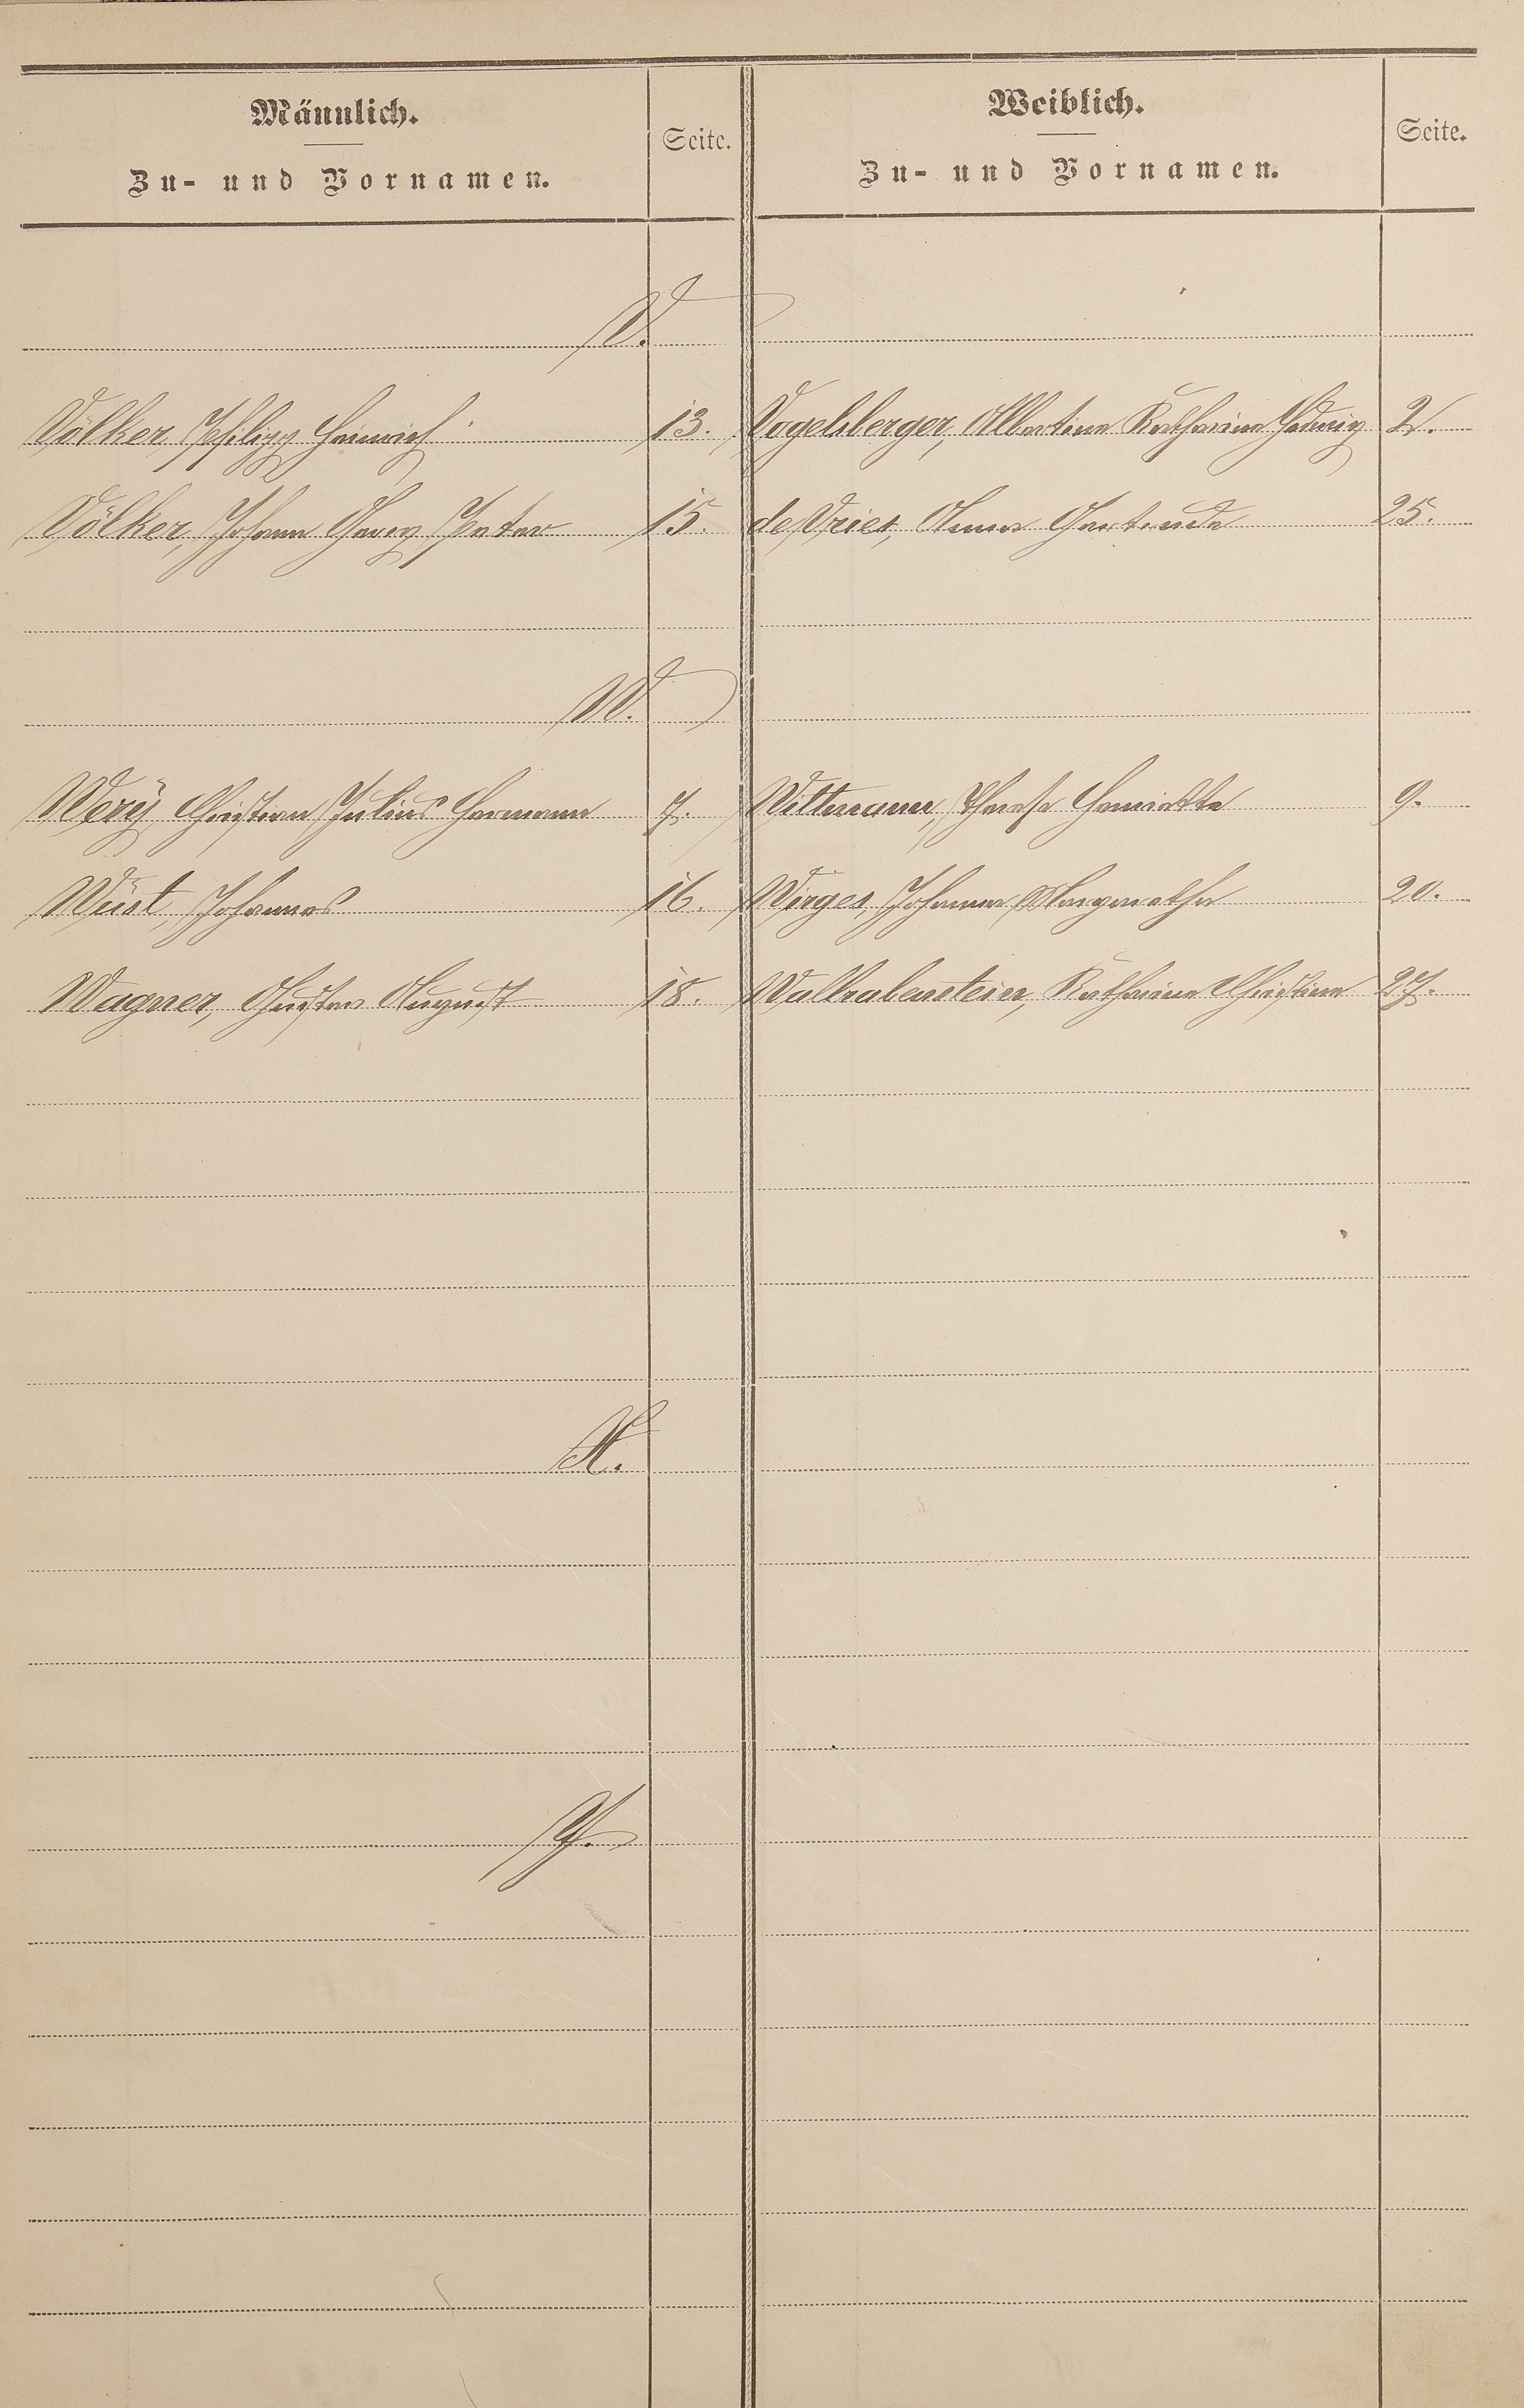 Männlich. Weiblich.
Zu- und Vornamen. Seite. Zu- und Vornamen. Seite.
V.
Völker, Philipp Heinrich 13. Vogelsberger, Albertine Katharine Hedwig 2.
Völker, Johann Georg Peter 15. de Vries, Anna Gertrude 25.
W.
Werÿ, Christian Julius Hermann 7. Wittmann, Therese Henriette 9.
Wüst, Johannes 16. Wirges, Johanna Margaretha 20.
Wagner, Gustav August 18. Wallrabenstein, Katharine Christine 27.
X.
Y.